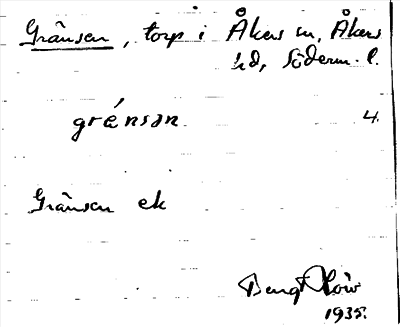 Gränsen, torp i Åkers sn, Åkers
hd, Söderm. l.
grénsən. 4.
Gränsen ek
Bengt
1935.